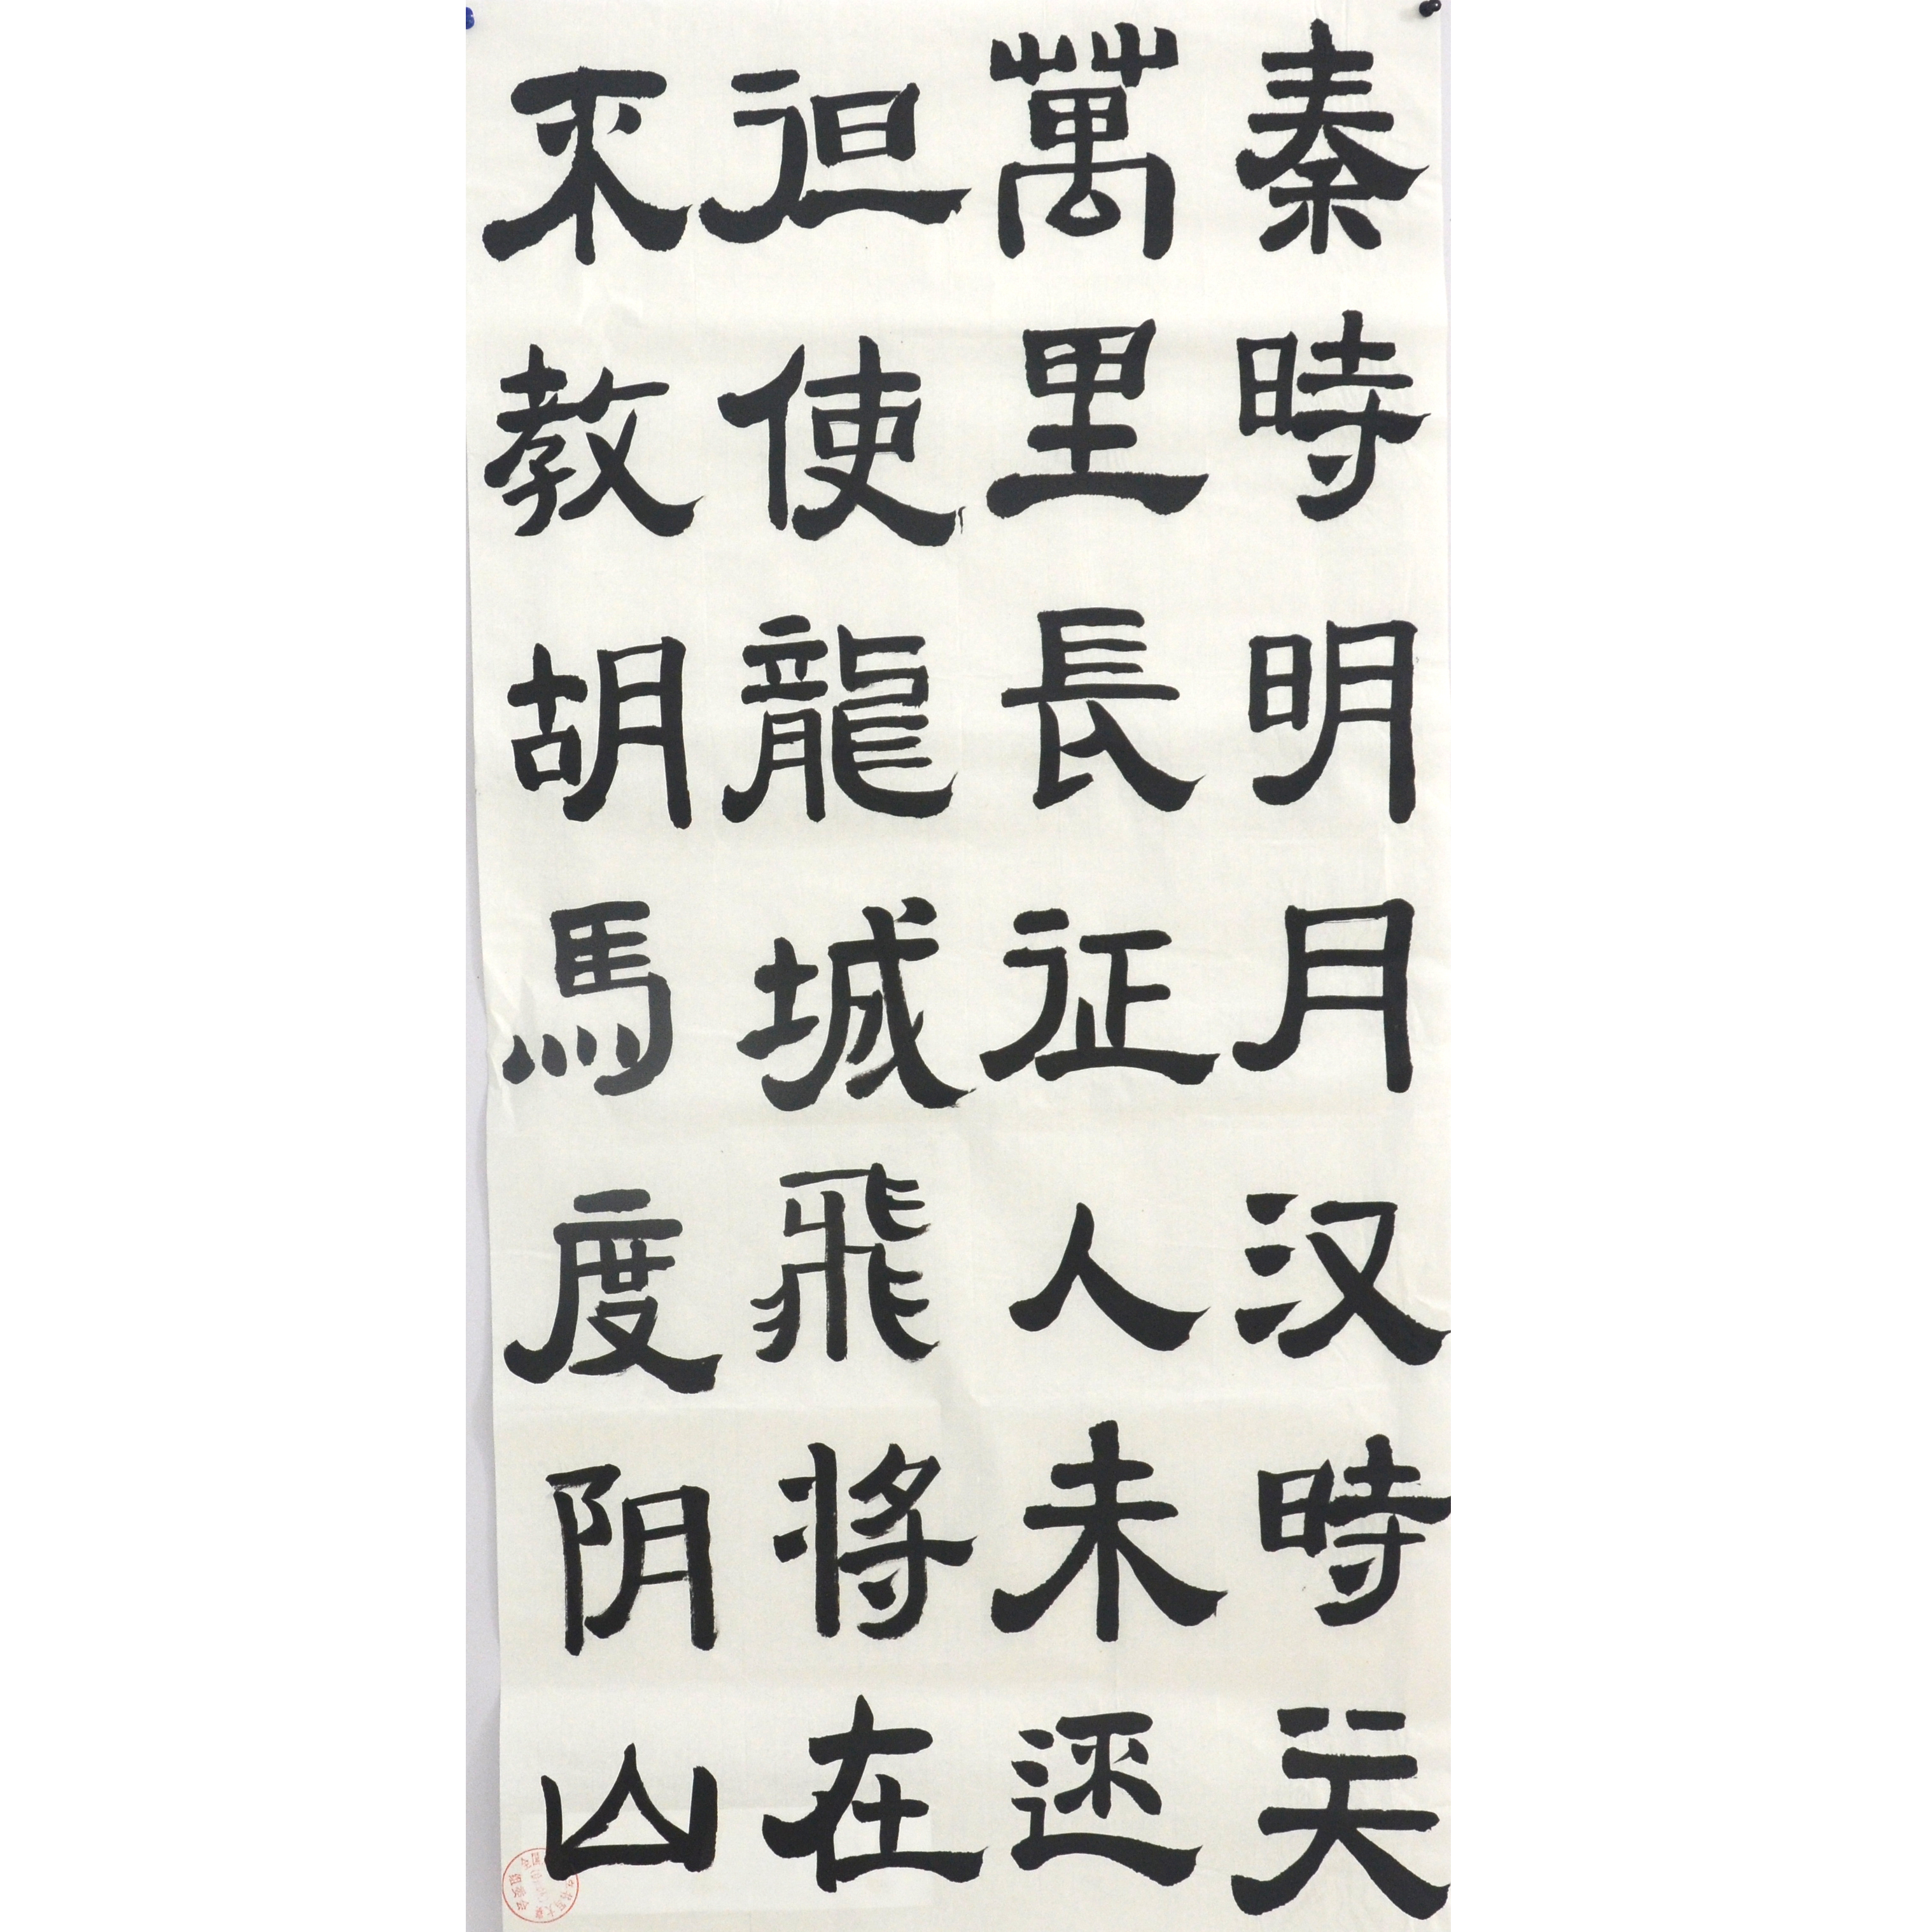 秦時明月汉時关
萬里長征人未还
但使龍城飛将在
不教胡馬度阴山